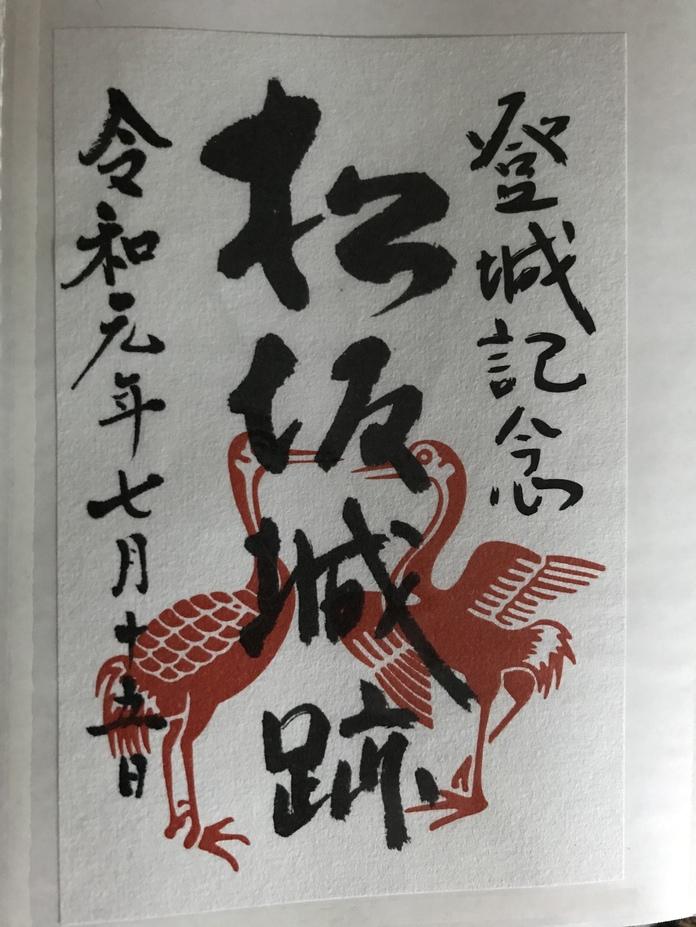 登城記念
松坂城跡
令和元年七月十五日